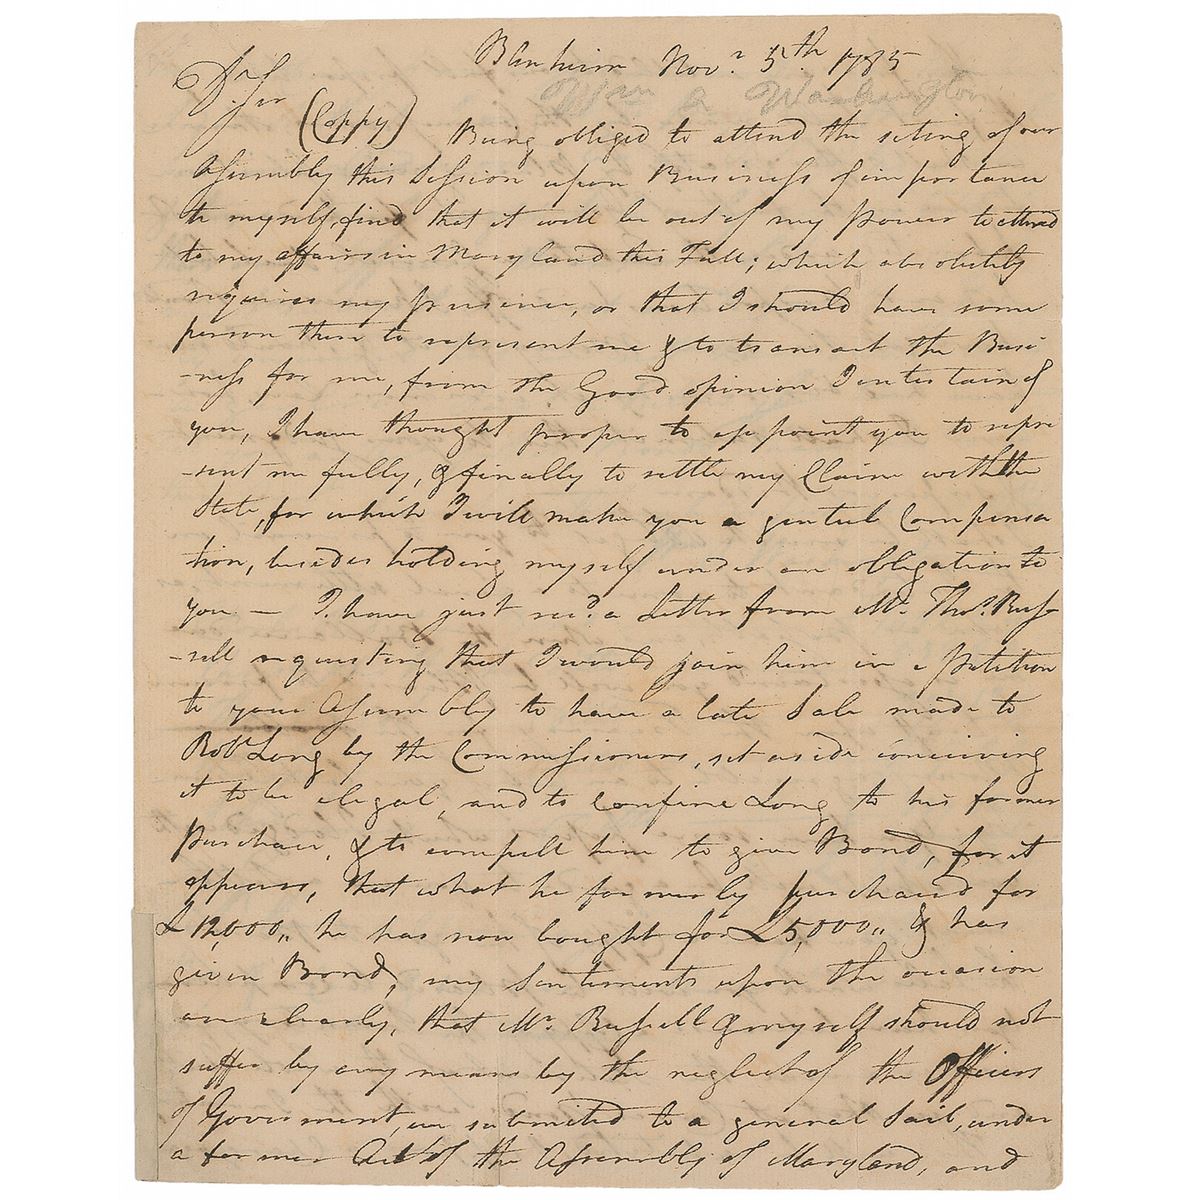 Blenheim Novr. 5th 1785
Wm A Washington
Dr. Sir
(Coppy) Being obliged to attend the seting of our
Assembly this Session upon Business of importance
to myself, find that it will be out of my power to attend
to my affairs in Maryland this Fall; which absolutely
requires my presence, or that I should have some
person there to represent me & to transact the Busi-
-ness for me, from the Good opinion I entertain of
you, I have thought proper to appoint you to repre
-sent me fully, & finally to settle my Claim with the
State, for which I will make you a genteel Compensa
tion, besides holding myself under an obligation to
you — I have just recd. a Letter from Mr. Thos. Rus-
-sell requesting that I would join him in a petition
to your Assembly to have a late Sale made to
Robt. Long by the Commissioners, set aside conceiving
it to be elegal, and to confine Long to his former
purchase, & to compell him to give Bond, for it
appears, that what he formerly purchased for
£12,000,, he has now bought for £5,000,, & has
given Bond, my sentiments upon the occasion
are clearly, that Mr. Russell & myself should not
suffer by any means by the neglect of the Officers
of Goverment, we submited to a general Sail, under
a former Act of the Assembly of Maryland, and